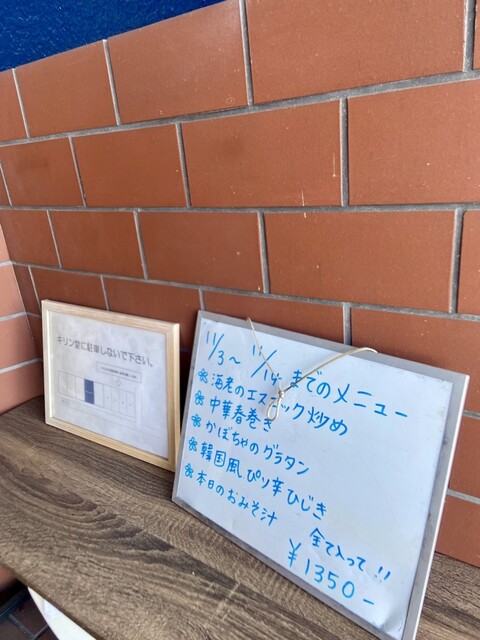 キリン堂に駐車しないで下さい。
11/3〜11/14 までのメニュー
❀海老のエスニック炒め
❀中華春巻き
❀かぼちゃのグラタン
❀韓国風ぴり辛ひじき
❀本日のおみそ汁
全て入って!!
¥1350-